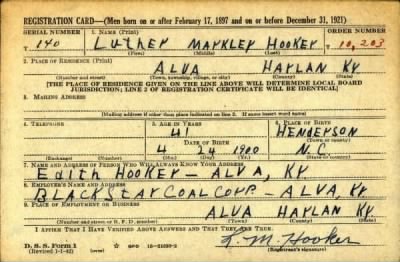 REGISTRATION CARD—(Men born on or after February 17, 1897 and on or before December 31, 1921)
SERIAL NUMBER 1. NAME (Print) ORDER NUMBER
T 140 Luther Markley Hooker 10,203
(First) (Middle) (Last)
2. PLACE OF RESIDENCE (Print)
ALVA HARLAN KY
(Number and street) (Town, township, village, or city) (County) (State)
[THE PLACE OF RESIDENCE GIVEN ON THE LINE ABOVE WILL DETERMINE LOCAL BOARD
JURISDICTION; LINE 2 OF REGISTRATION CERTIFICATE WILL BE IDENTICAL]
3. MAILING ADDRESS
[Mailing address if other than place indicated on line 2. If same insert word same]
4. TELEPHONE 5. AGE IN YEARS 6. PLACE OF BIRTH
41 HENDERSON
DATE OF BIRTH (Town or county)
4 24 1900 N.C
(Exchange) (Number) (Mo.) (Day) (Yr.) (State or country)
7. NAME AND ADDRESS OF PERSON WHO WILL ALWAYS KNOW YOUR ADDRESS
Edith Hooker — ALVA, KY.
8. EMPLOYER'S NAME AND ADDRESS
BLACK STAR COAL CORP. — ALVA, KY
9. PLACE OF EMPLOYMENT OR BUSINESS
ALVA HARLAN KY.
(Number and street or R. F. D. number) (Town) (County) (State)
I AFFIRM THAT I HAVE VERIFIED ABOVE ANSWERS AND THAT THEY ARE TRUE.
D. S. S. Form 1
(Revised 1-1-42) L. M. Hooker
(Registrant's signature)